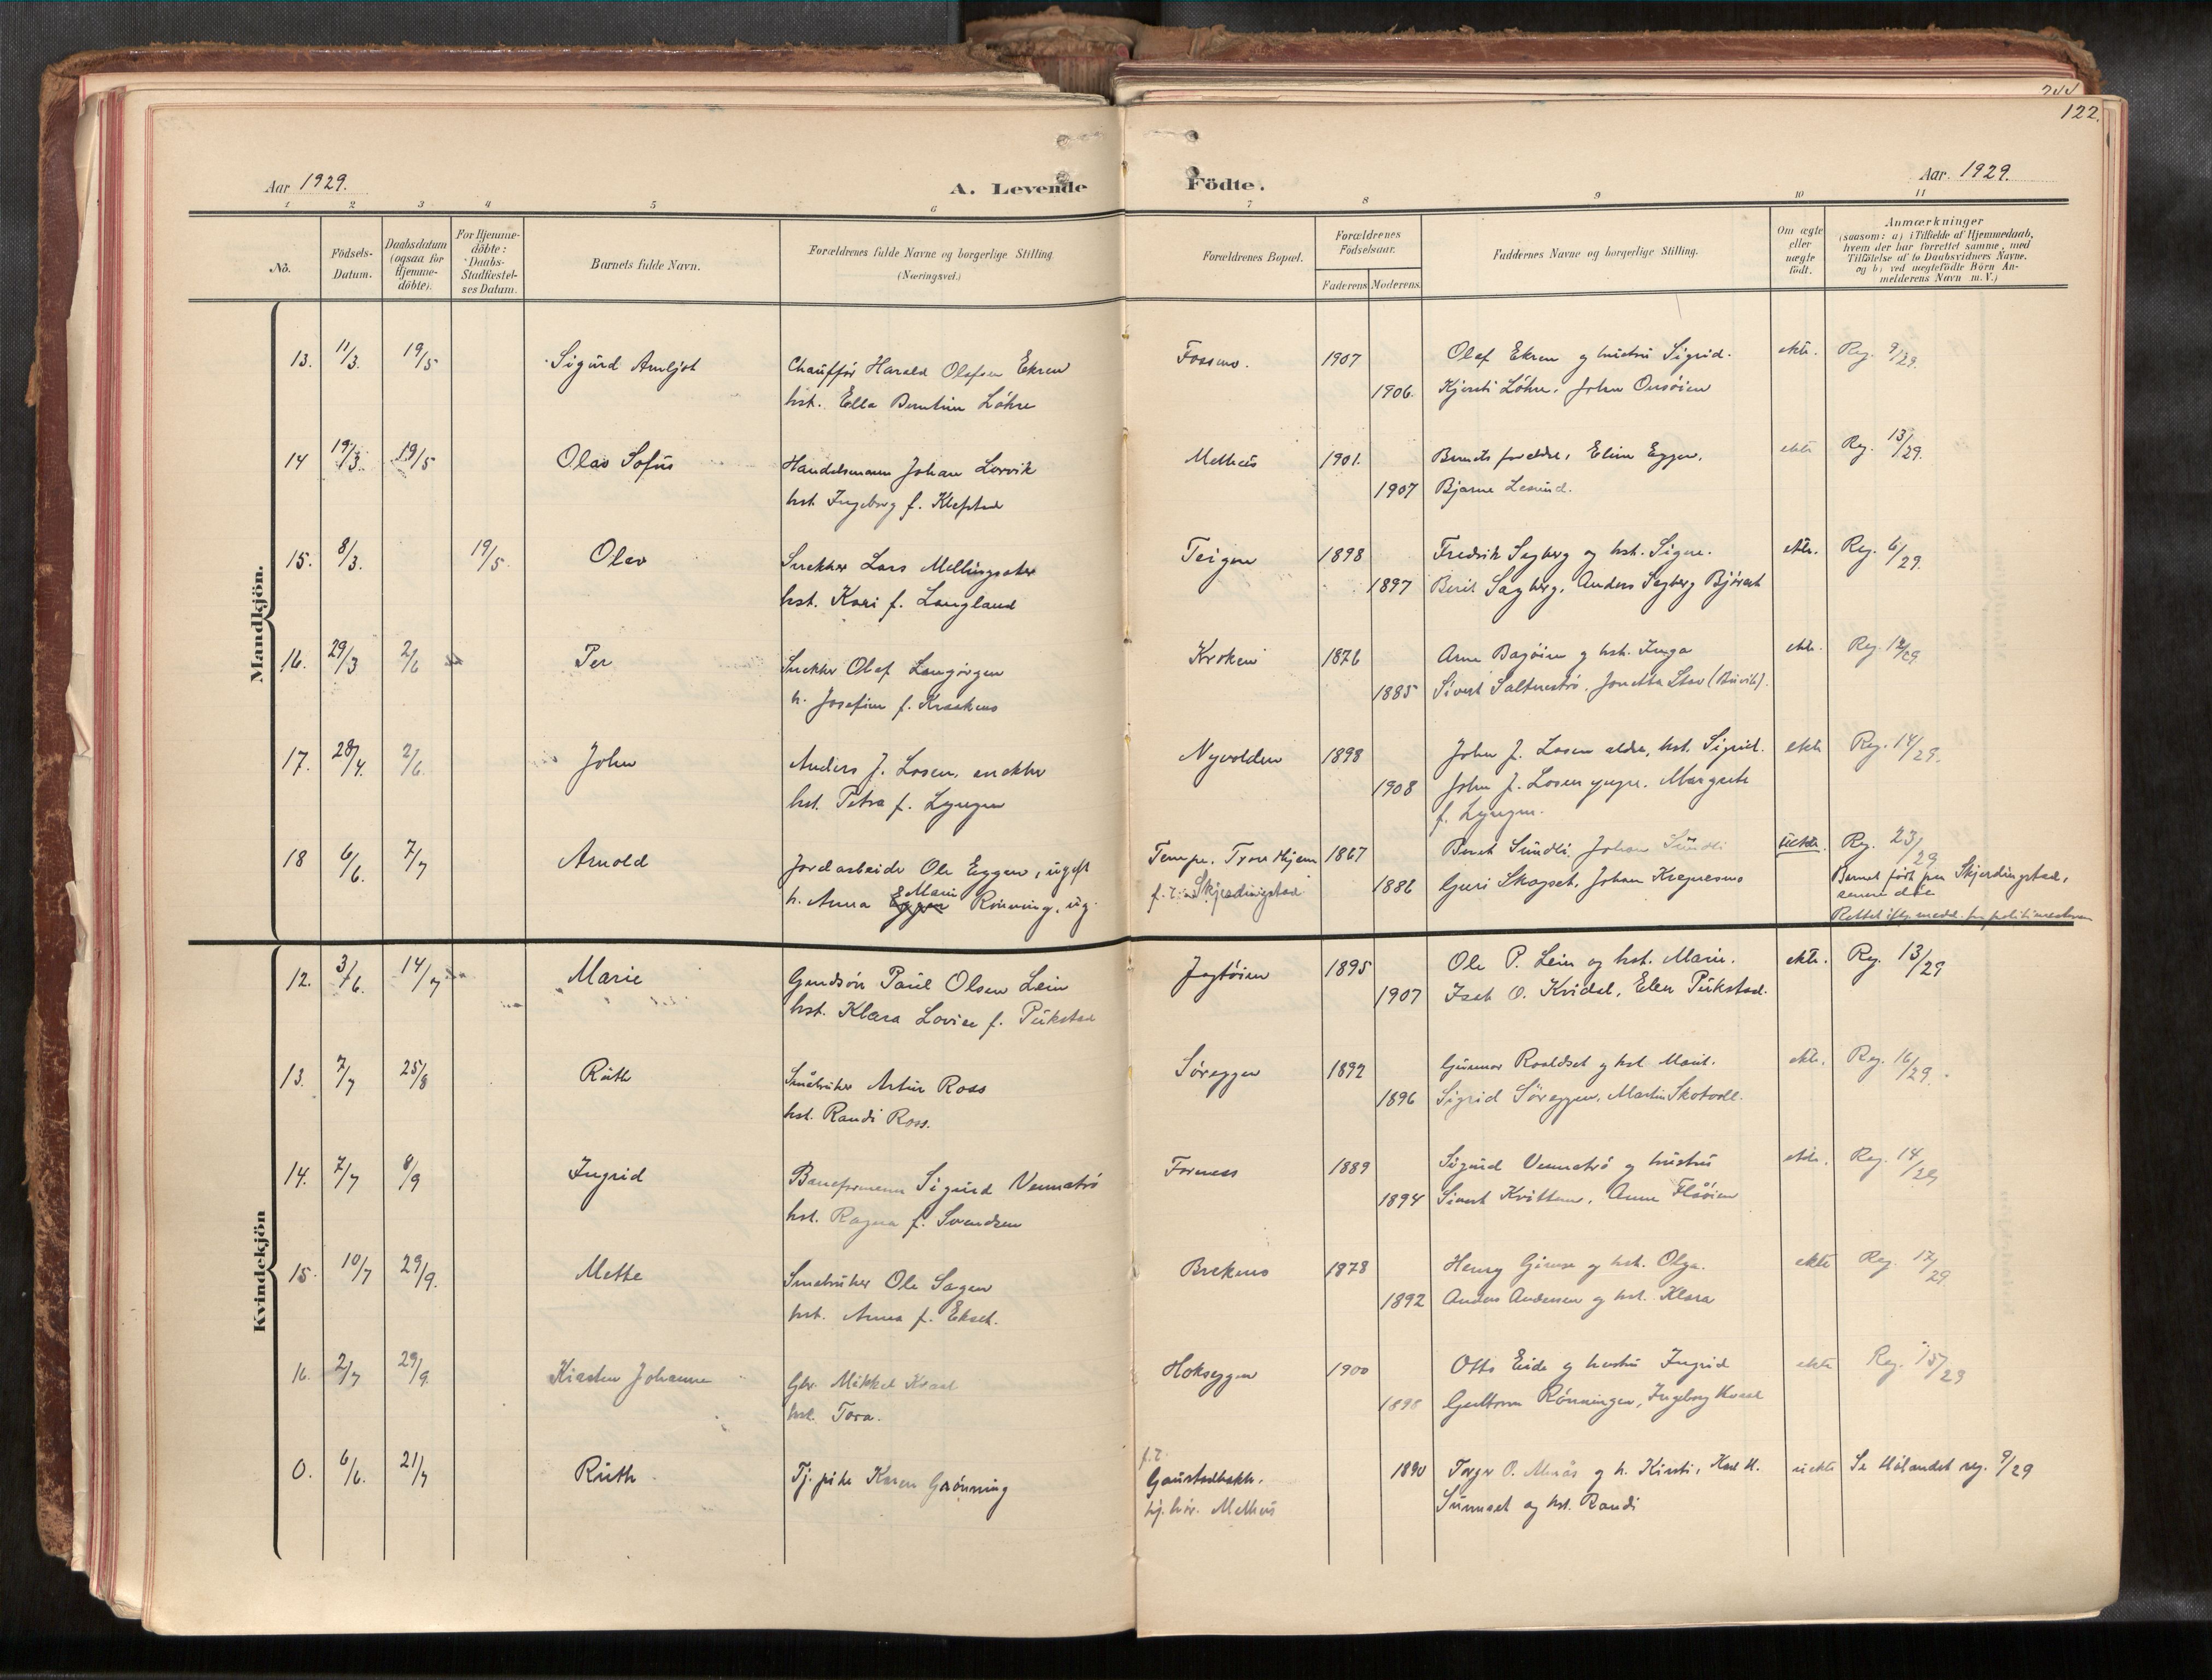 122.
Aar 1929.
A. Levende Födte.
Aar 1929.
1 2 3 4 5 6 7 8 9 10 11
No.
Födsels-
Datum.
Daabsdatum
(ogsaa for
Hjemme-
döbte).
For Hjemme-
döbte:
Daabs-
Stadfæstel-
ses Datum.
Barnets fulde Navn.
Forældrenes fulde Navne og borgerlige Stilling.
(Næringsvei.)
Forældrenes Bopæl.
Forældrenes
Födselsaar.
Faderens Moderens.
Faddernes Navne og borgerlige Stilling.
Om ægte
eller
uægte
født.
Anmærkninger
(saasom: a) i Tilfælde af Hjemmedaab,
hvem der har forrettet samme, med
Tilföielse af to Daabsvidners Navne.
og b) ved uægtefödte Börn An-
melderens Navn m.V.)
Mandkjön.
13. 11/3. 19/5 Sigurd Arnljot Chauffør Harald Olafsen Ekren Fossmo. 1907 Olaf Ekren og hustru Sigrid. ekte. Reg. 9/29.
hst. Ella Bentine Löhre 1906. Kjersti Löhre, John
14 19/3. 19/5 Olav Sofus Handelsmann Johan Lervik Melhus 1901. Barnets foreldre, Eline Eggen, ekte Reg. 13/29.
hst. Ingeborg f. Klefstad 1907 Bjarne Lesund.
15. 8/3. 19/5. Olav Snekker Lars Mellingsæter Teigen 1898 Fredrik Sagberg og hst. Signe. ekte. Reg. 6/29.
hst. Kari f. Langland 1897 Berit Sagberg, Anders Sagberg
16. 29/3 2/6 Per Snekker Olaf Langørgen Kroken 1876 Arne Bagøien og hst. Inga ekte. Reg. 12/29
h. Josefine f. Kraakmo 1885 Sivert Saltnestrø, Jonetta Stav (Buvik).
17. 28/4. 2/6. John Anders J. Losen, snekker Nyvolden 1898 John J. Losen eldre, hst. Sigrid. ekte Reg. 14/29.
hst. Petra f. Lyngen 1908 John J. Losen yngre. Margrete
f. Lyngen.
18 6/6. 7/7 Arnold Jordarbeider Ole Eggen, ugift Tempe. Trondhjem 1867 Beret Sundli. Johan Sundli uekte. Reg. 23/29
h. Anna Marie Rönning, ug. f. i Skjerdingstad 1886 Guri Skogset, Johan Barnet født paa Skjerdingstad,
samme dato
Rettet iflg. medd. fra politimesteren
Kvindekjön
12. 3/6. 14/7 Marie Gmdsön Paul Olsen Lein Jagtöien 1895 Ole P. Lein og hst. Marie. ekte. Reg. 13/29
hst. Klara Lovise f. Pukstad 1907 Isak O. Kvidal, Elen Pukstad.
13. 7/7 25/8 Ruth Småbruker Artur Ross Søreggen 1892 Gunnar Roaldset og hst. Marit. ekte. Reg. 16/29.
hst. Randi Ross. 1896 Sigrid Søreggen, Martin Skotvoll.
14. 7/7 8/9 Ingrid Baneformann Sigurd Vennatrø Forness 1889 Sigurd Vennatrø og hustru ekte. Reg. 14/29
hst. Ragna f. Svendsen 1894 Sivert Kvittem, Anne Flåöien
15. 10/7 29/9. Mette Småbruker Ole Sagen Brekmo 1878 Henry Gimse og hst. Olga. ekte Reg. 17/29.
hst. Anna f. Ekset. 1892 Anders Andersen og hst. Klara
16. 2/7 29/9. Kirsten Johanne Gbr. Mikkel Kvaal Hokseggen 1900 Otto Eide og hustru Ingrid ekte Reg. 15/29
hst. Tora. 1898 Guttorm Rönningen, Ingeborg Kvaal
0. 6/6. 21/7 Ruth Tj. pike Karen Grönning f. i 1890 Torger O. Aunås og h. Kirsti, Karl M. uekte Se Hölandet reg. 9/29
Gaustadbakk.
hj. hör. Melhus Sunnset og hst. Randi